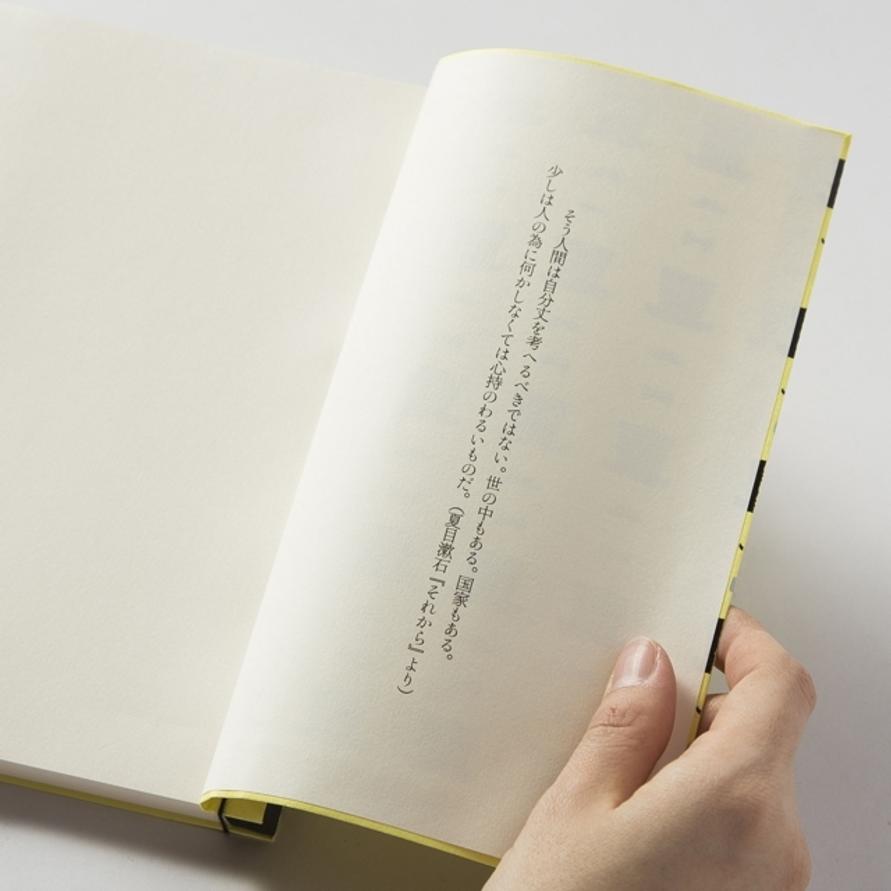 そう人間は自分丈を考へるべきではない。世の中もある。国家もある。
少しは人の為に何かしなくては心持のわるいものだ。（夏目漱石『それから』より）